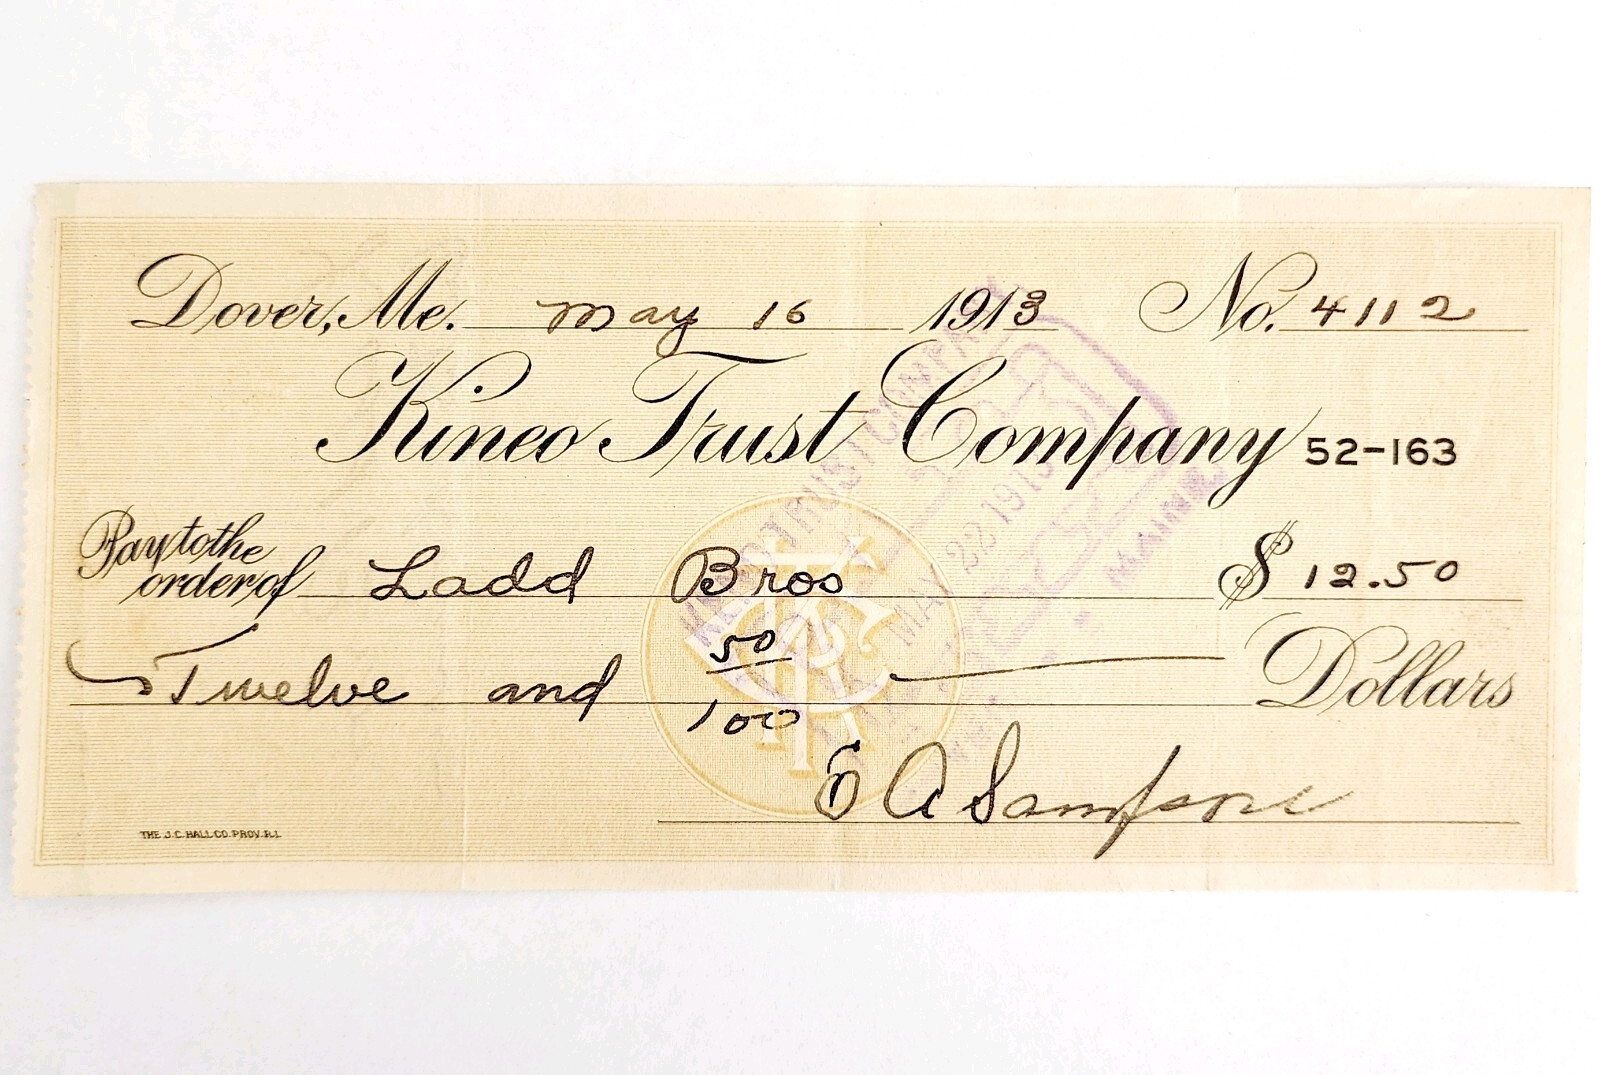 Dover, Me. May 16 1913 No. 4112
Kineo Trust Company 52-163
Pay to the
order of Ladd Bros $ 12.50
Twelve and 50/100 Dollars
E A Sampson
THE J.C. HALL CO. PROV. R.I.
KINEO TRUST COMPANY
MAY 22 1913
MAINE
KTC